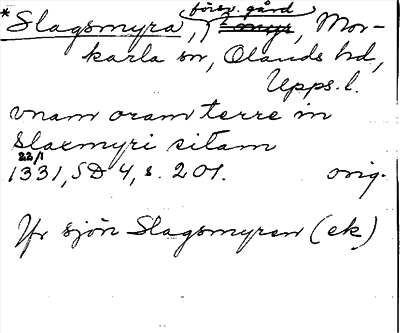 försv. gård
*Slagsmyra, ? myr, Mor-
karla sn, Olands hd,
Upps. l.
vnam oram terre in
Slaxmyri sitam
22/1
1331, SD 4, s. 201. orig.
Jfr sjön Slagsmyren (ek)